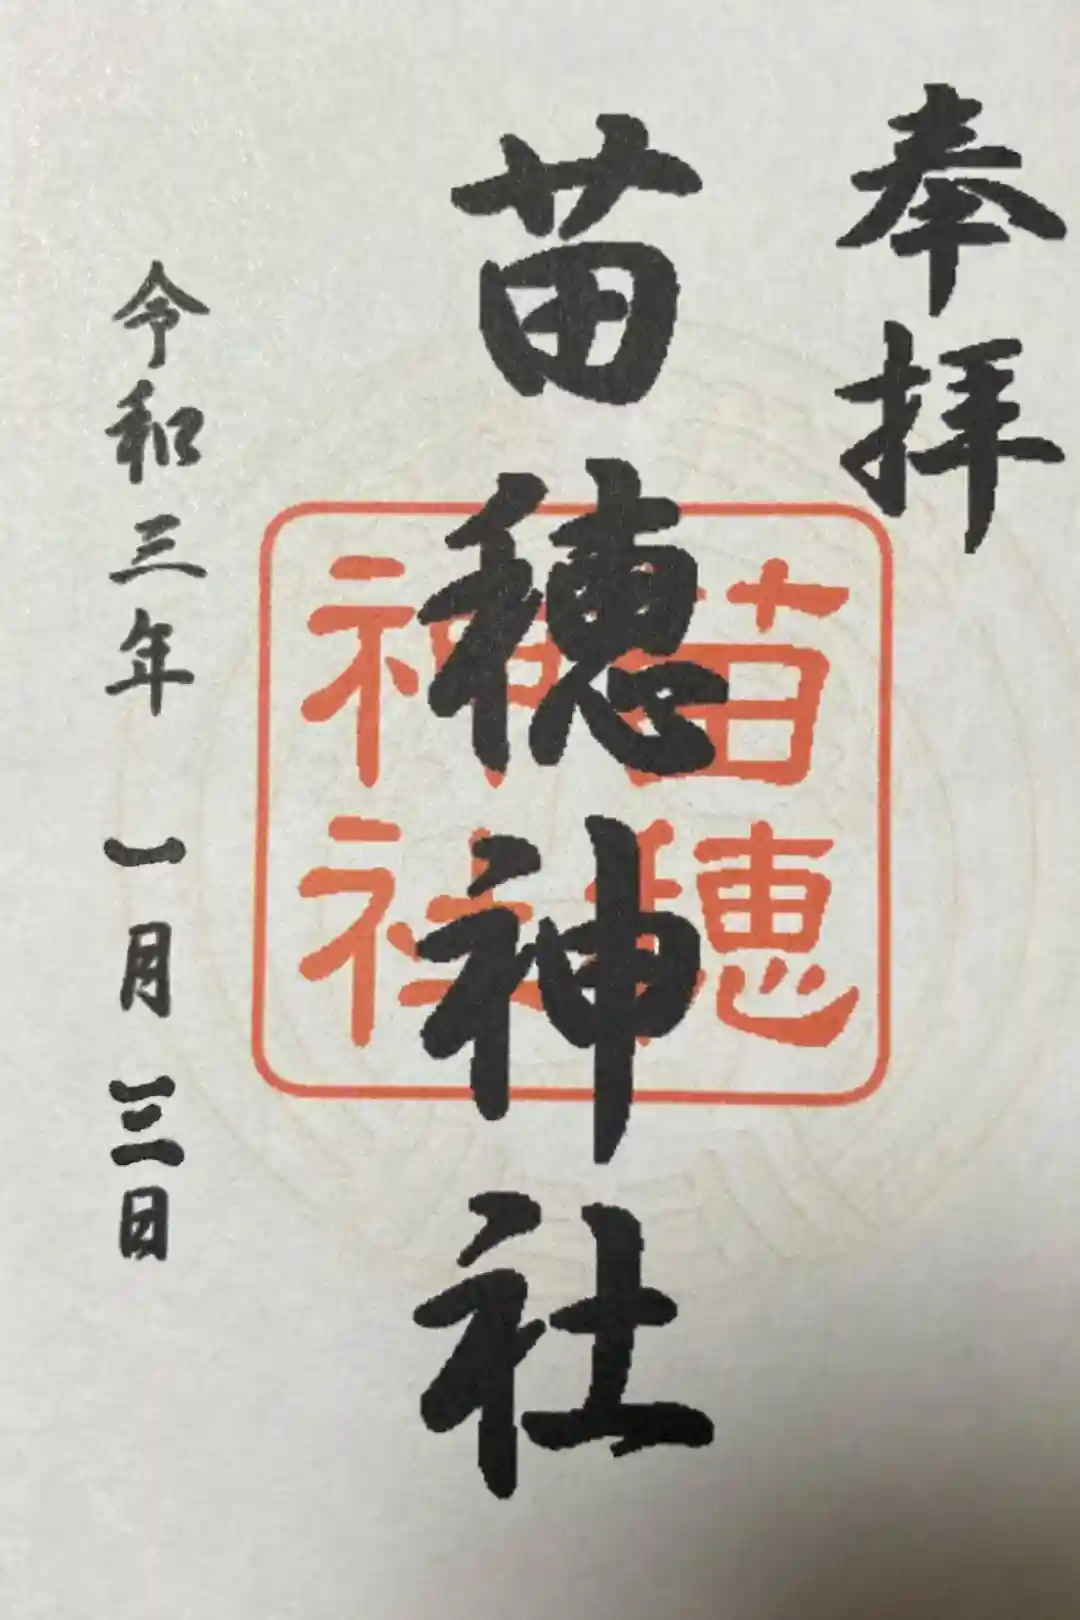 奉拝
苗穂神社
苗穂
神社
令和三年 一月三日